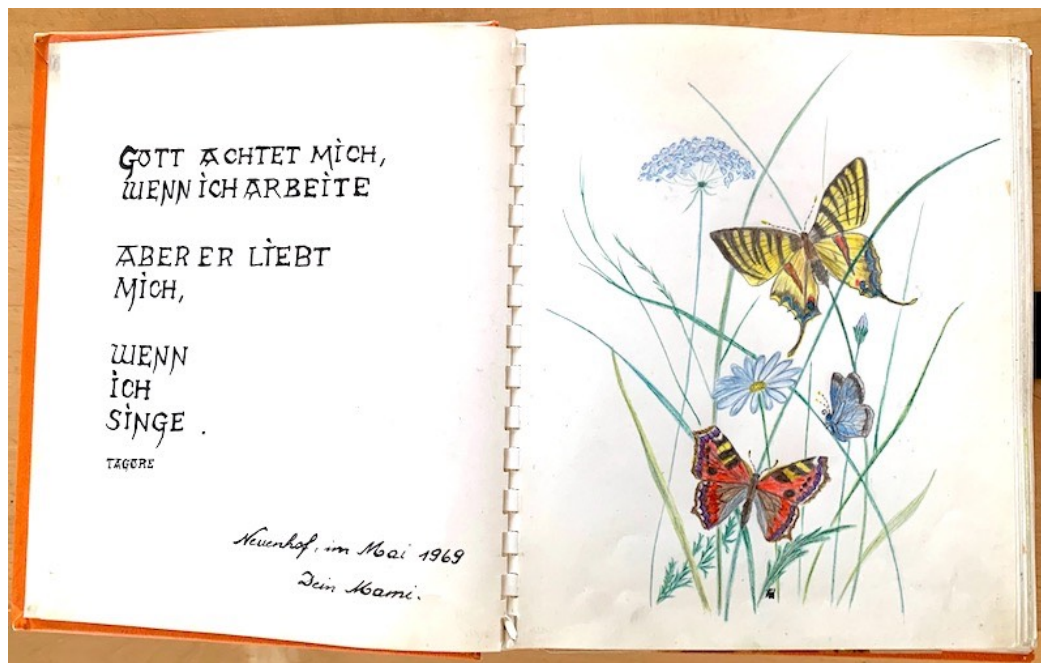 GOTT ACHTET MICH,
WENN ICH ARBEITE
ABER ER LIEBT
MICH,
WENN
ICH
SINGE .
TAGORE
Neuenhof, im Mai 1969
Dein Mami.